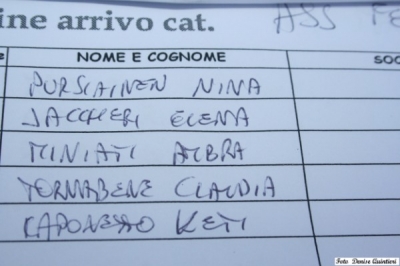 ine arrivo cat. ASS FE
NOME E COGNOME SOC
PURSIAINEN NINA
JACCHERI ELEMA
MINIATI AMBRA
TORNABENE CLAUDIA
CAPONETTO KETI
Foto Denise Quintieri